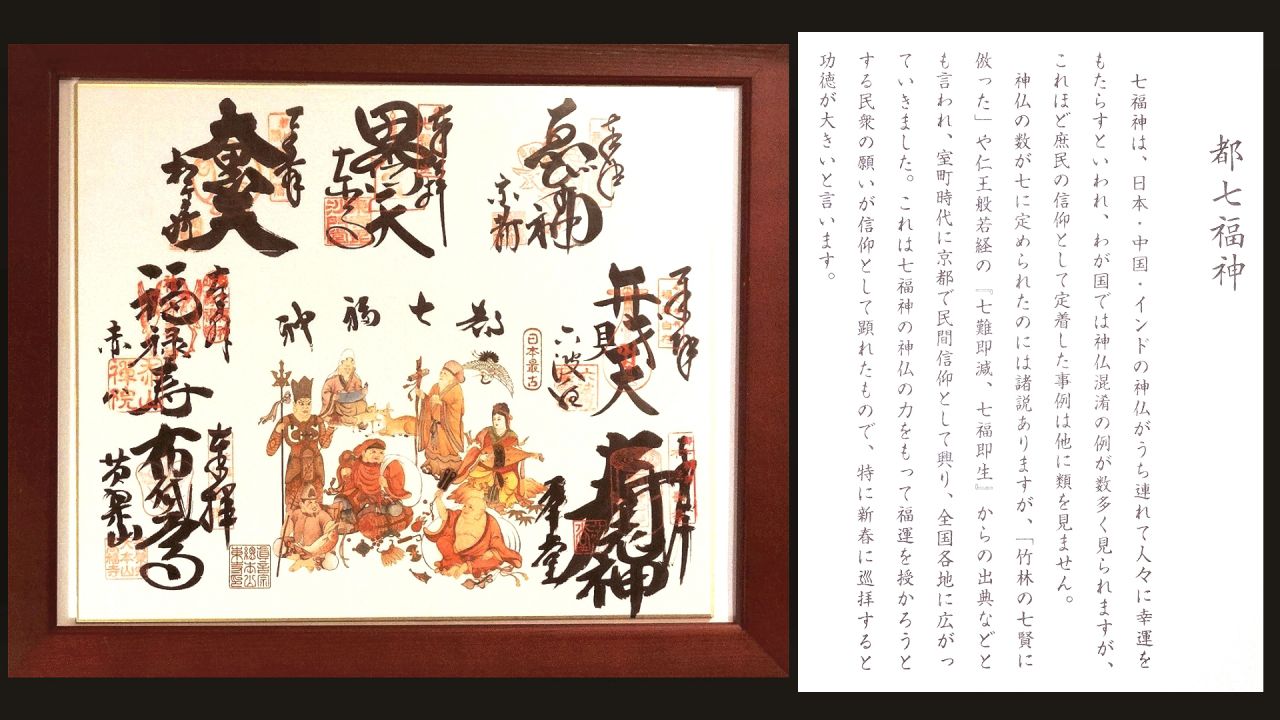 奉拝
恵比須神
奉拝
毘沙門天
東寺
大黒天
奉拝
弁財天
六波羅
奉拝
福禄寿
赤山
禅院
都七福神
日本最古
寿老神
革堂
奉拝
布袋尊
黄檗山
都七福神
七福神は、日本・中国・インドの神仏がうち連れて人々に幸運を
もたらすといわれ、わが国では神仏混淆の例が数多く見られますが、
これほど庶民の信仰として定着した事例は他に類を見ません。
神仏の数が七に定められたのには諸説ありますが、「竹林の七賢に
倣った」や仁王般若経の『七難即減、七福即生』からの出典などと
も言われ、室町時代に京都で民間信仰として興り、全国各地に広がっ
ていきました。これは七福神の神仏の力をもって福運を授かろうと
する民衆の願いが信仰として顕れたもので、特に新春に巡拝すると
功徳が大きいと言います。